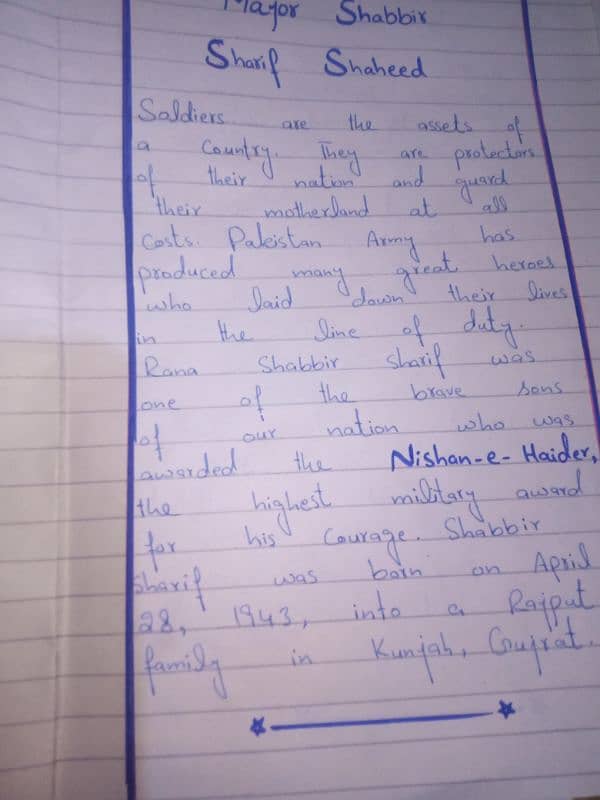 Mayor Shabbir
Sharif Shaheed
Soldiers are the assets of
a country. They are protectors
of their nation and guard
their motherland at all
costs. Pakistan Army has
produced many great heroes
who laid down their lives
in the line of duty.
Rana Shabbir sharif was
one of the brave sons
of our nation who was
awarded the Nishan-e-Haider,
the highest military award
for his courage. Shabbir
sharif was born on April
28, 1943, into a Rajput
family in Kunjah, Gujrat.